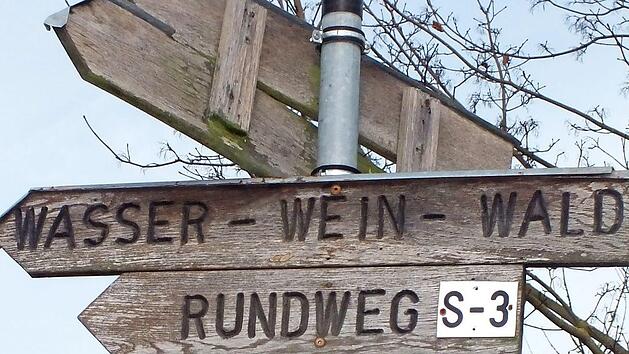 WASSER - WEIN - WALD
RUNDWEG S-3